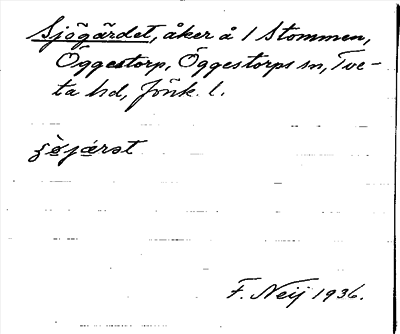 Sjögärdet, åker å 1 Stommen,
Öggestorp, Öggestorps sn, Tve-
ta hd, Jönk. l.
F. Neij 1936.